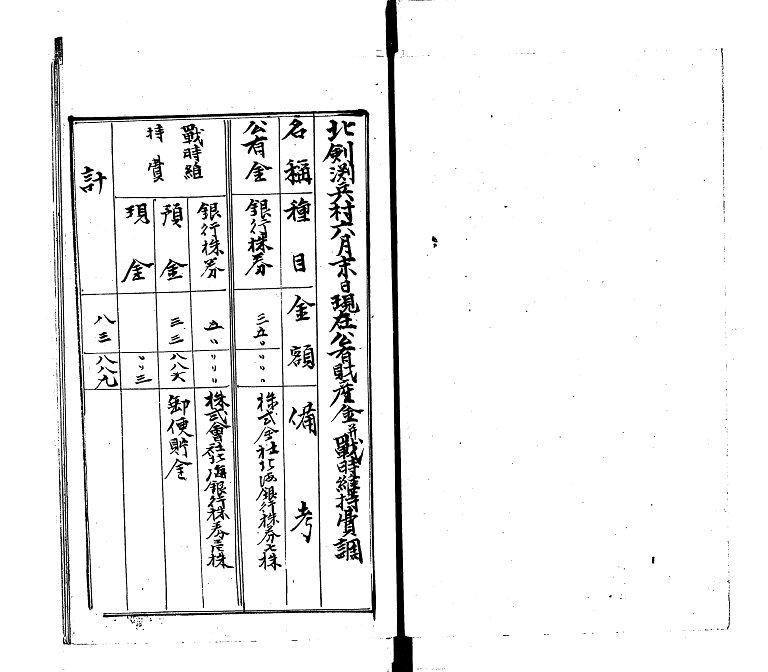 北剣渕兵村六月末日現在公有財産金并戰時維持費調
名稱 種目 金額 備考
公有金 銀行株券 三五〃〃〃〃 株式会社北海銀行株券七株
戰時維持費 銀行株券 五〃〃〃〃 株式會社北海銀行株券壱株
預金 三三八八六 郵便貯金
現金 〃〃三
計 八三八八九